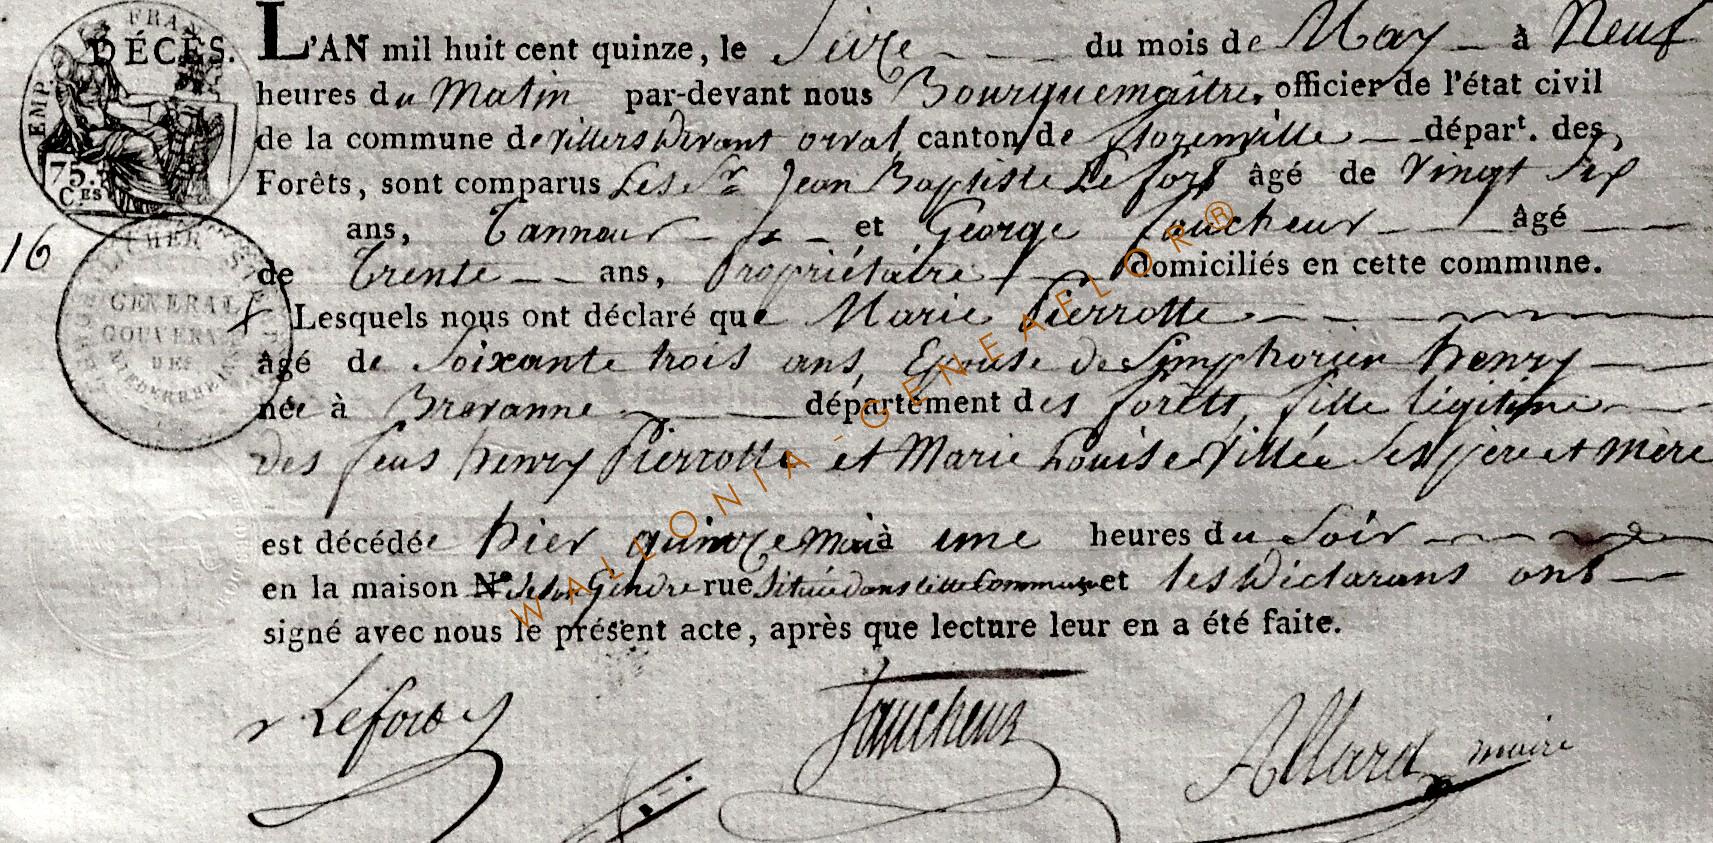 DÉCÈS. L'AN mil huit cent quinze, le Seize du mois de May à Neuf
heures du Matin par-devant nous Bourguemaître, officier de l'état civil
de la commune de villers devant orval canton de florenville départ. des
Forêts, sont comparus Les Sr Jean Baptiste Lefort âgé de vingt Six
ans, Tanneur et George faucheur âgé
16
de Trente ans, Propriétaire domiciliés en cette commune.
Lesquels nous ont déclaré que Marie Pierrotte
âgé de Soixante trois ans, Epouse de Simphorien henry
née à Brevanne département des forêts, fille légitime
des feus henry Pierrotte et Marie Louise Villée Ses père et mère
est décédée hier quinze mai à une heures du Soir
en la maison N° de son Gendre rue Située dans cette Commune et les Déclarans ont
signé avec nous le présent acte, après que lecture leur en a été faite.
Lefort faucheur Allard maire
EMP. FRAN
75.
C.ES
GENERAL
GOUVERN
DES
NIEDERRHEIN
WALLONIA-GENEAFLOR®